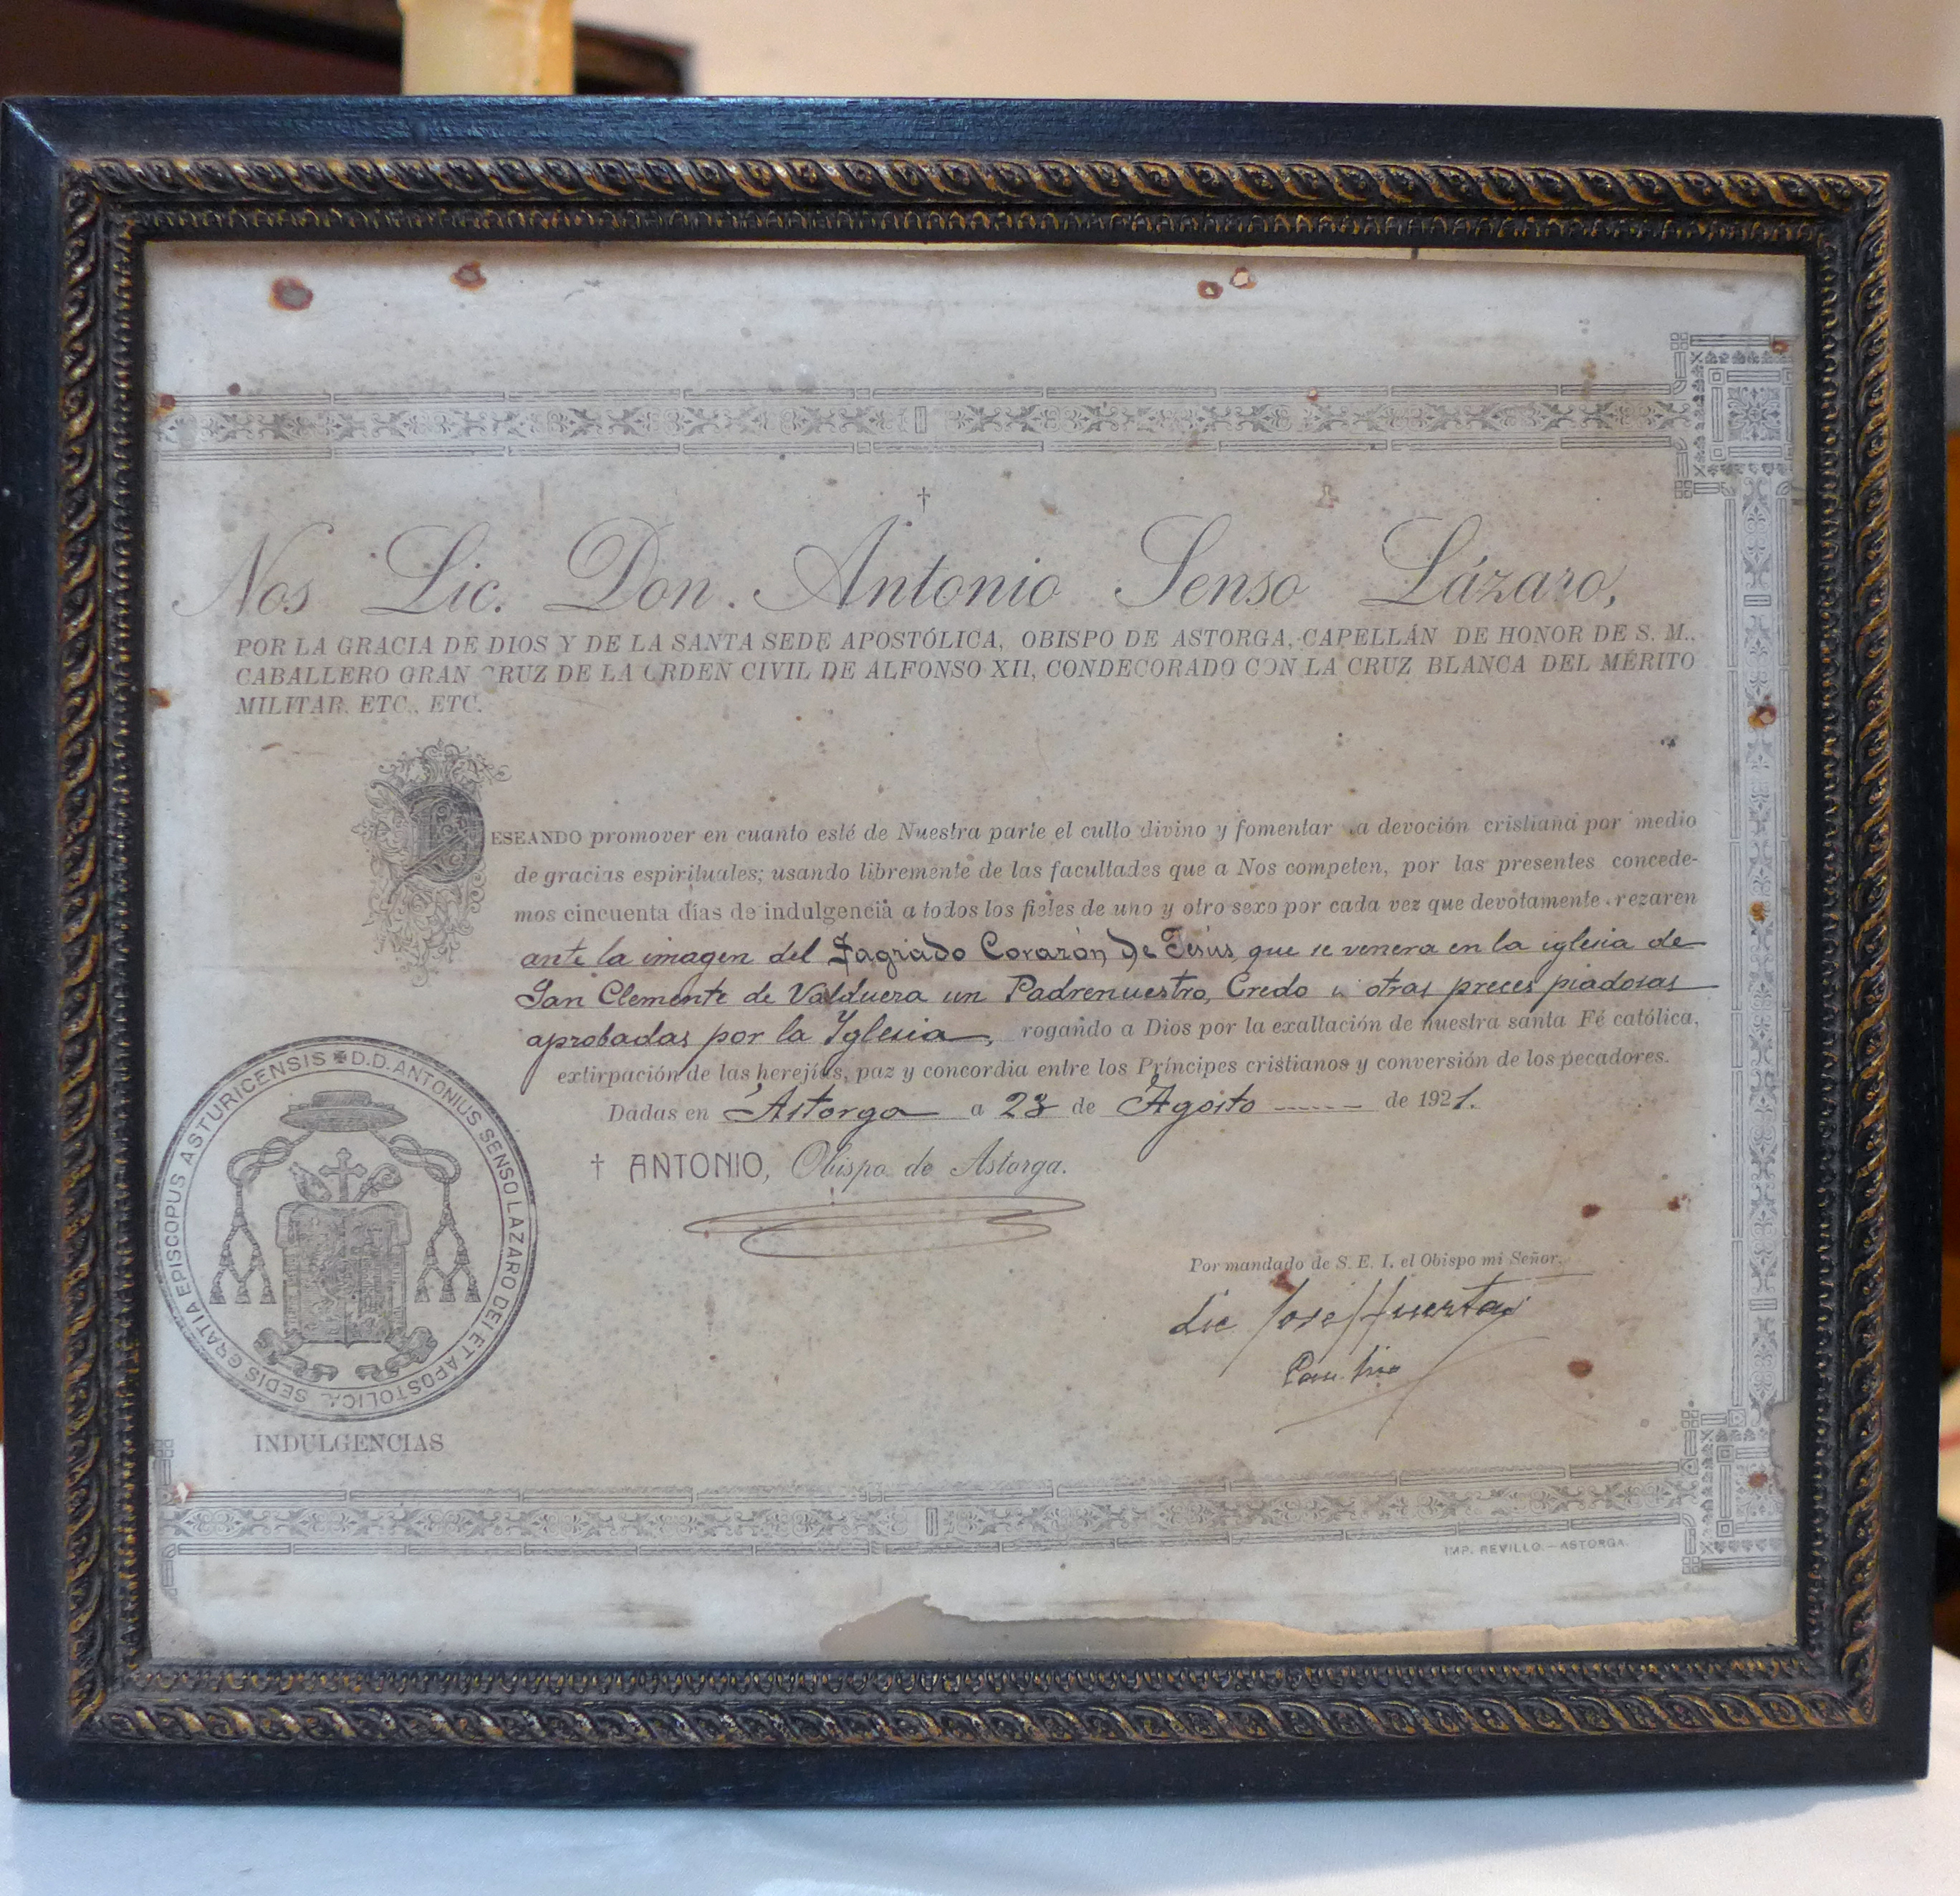 †
Nos Lic. Don. Antonio Senso Lázaro,
POR LA GRACIA DE DIOS Y DE LA SANTA SEDE APOSTÓLICA, OBISPO DE ASTORGA, CAPELLÁN DE HONOR DE S. M.,
CABALLERO GRAN CRUZ DE LA ORDEN CIVIL DE ALFONSO XII, CONDECORADO CON LA CRUZ BLANCA DEL MÉRITO
MILITAR, ETC., ETC.
DESEANDO promover en cuanto esté de Nuestra parte el culto divino y fomentar la devoción cristiana por medio
de gracias espirituales; usando libremente de las facultades que a Nos competen, por las presentes concede-
mos cincuenta días de indulgencia a todos los fieles de uno y otro sexo por cada vez que devotamente rezaren
ante la imagen del Sagrado Corazón de Jesús, que se venera en la iglesia de
San Clemente de Valduera un Padrenuestro, Credo u otras preces piadosas
aprobadas por la Iglesia, rogando a Dios por la exaltación de nuestra santa Fé católica,
extirpación de las herejías, paz y concordia entre los Príncipes cristianos y conversión de los pecadores.
Dadas en Astorga a 23 de Agosto de 1921.
† ANTONIO, Obispo de Astorga.
Por mandado de S. E. I. el Obispo mi Señor,
Lic José Huerta
D.D. ANTONIUS SENSO LAZARO DEI ET APOSTOLICA SEDIS GRATIA EPISCOPUS ASTURICENSIS
INDULGENCIAS
IMP. REVILLO.—ASTORGA.